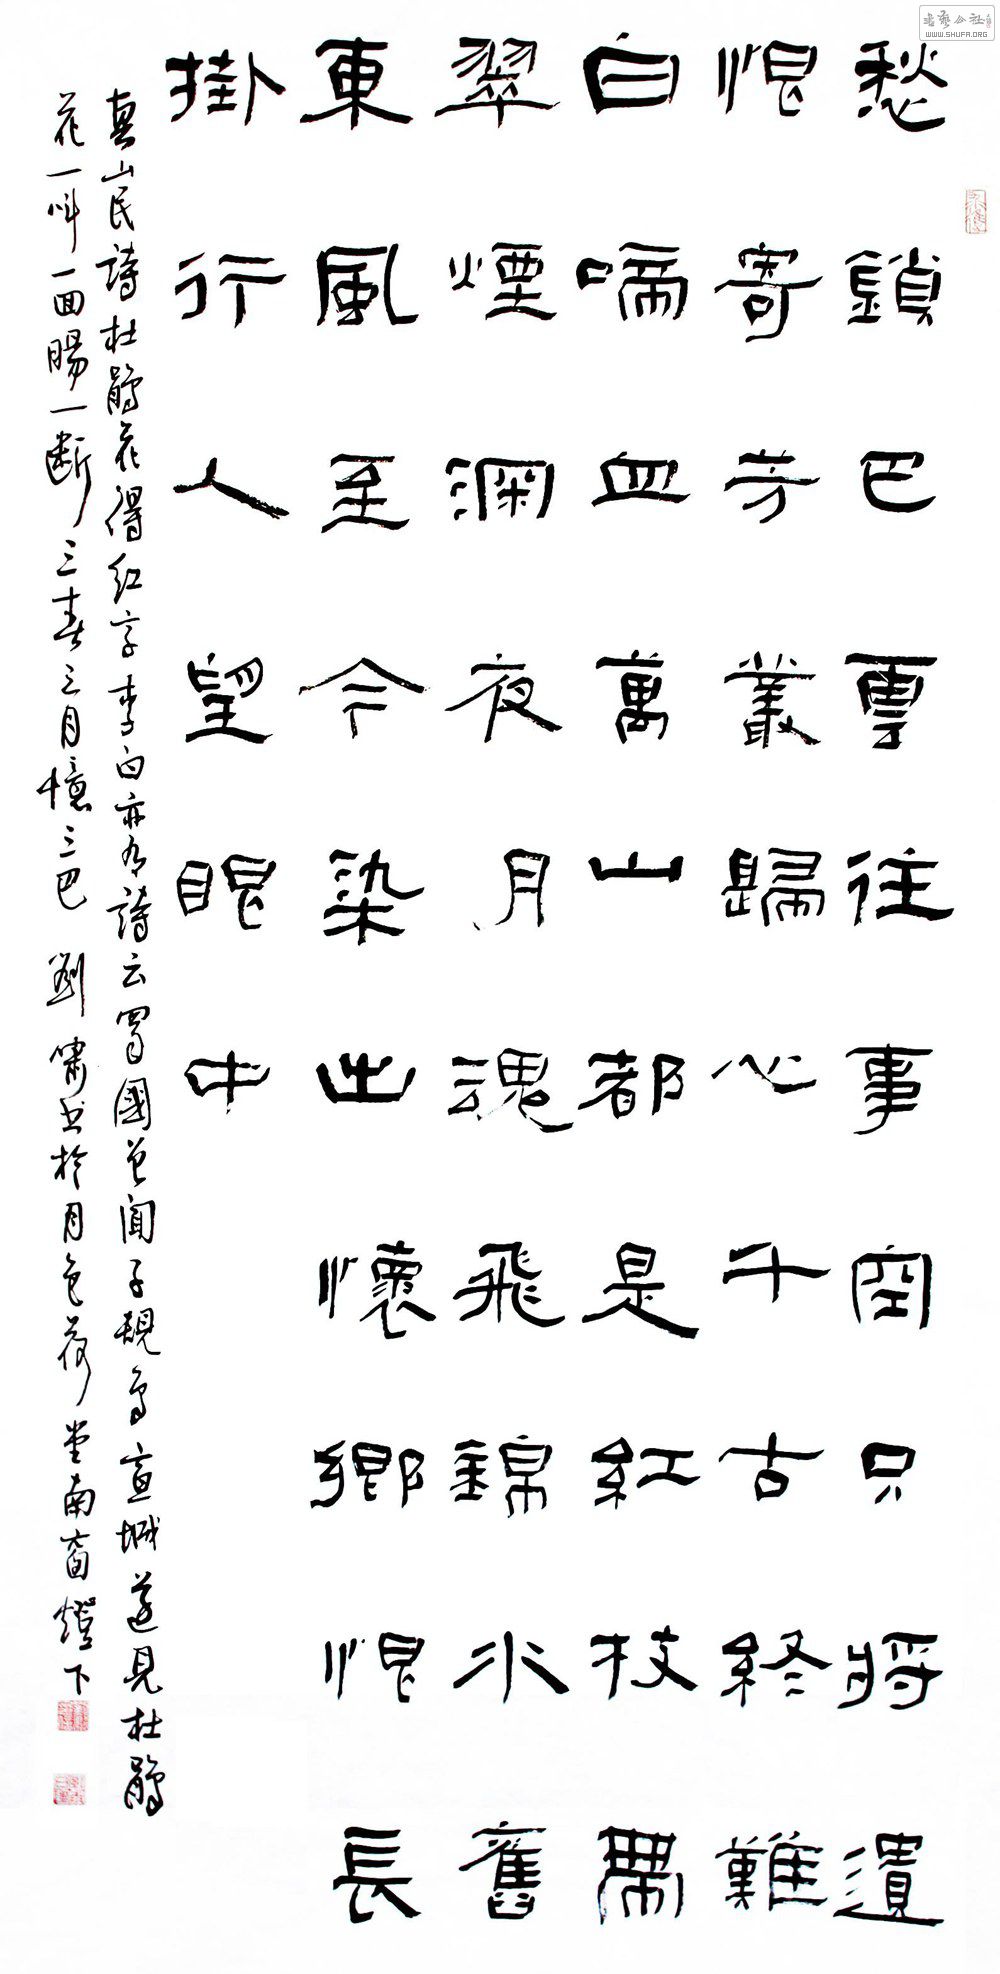 愁鎖巴雲往事空只將遺
恨寄芳叢歸心千古終難
白啼血萬山都是紅枝帶
翠煙深夜月魂飛錦水舊
東風至今染出懷鄉恨長
掛行人望眼中
真山民詩杜鵑花得紅字李白亦有詩云蜀國曾聞子規鳥宣城還見杜鵑
花一叫一回腸一斷三春三月憶三巴 劉嘯書於月色荷堂南窗燈下
書藝公社
WWW.SHUFA.ORG